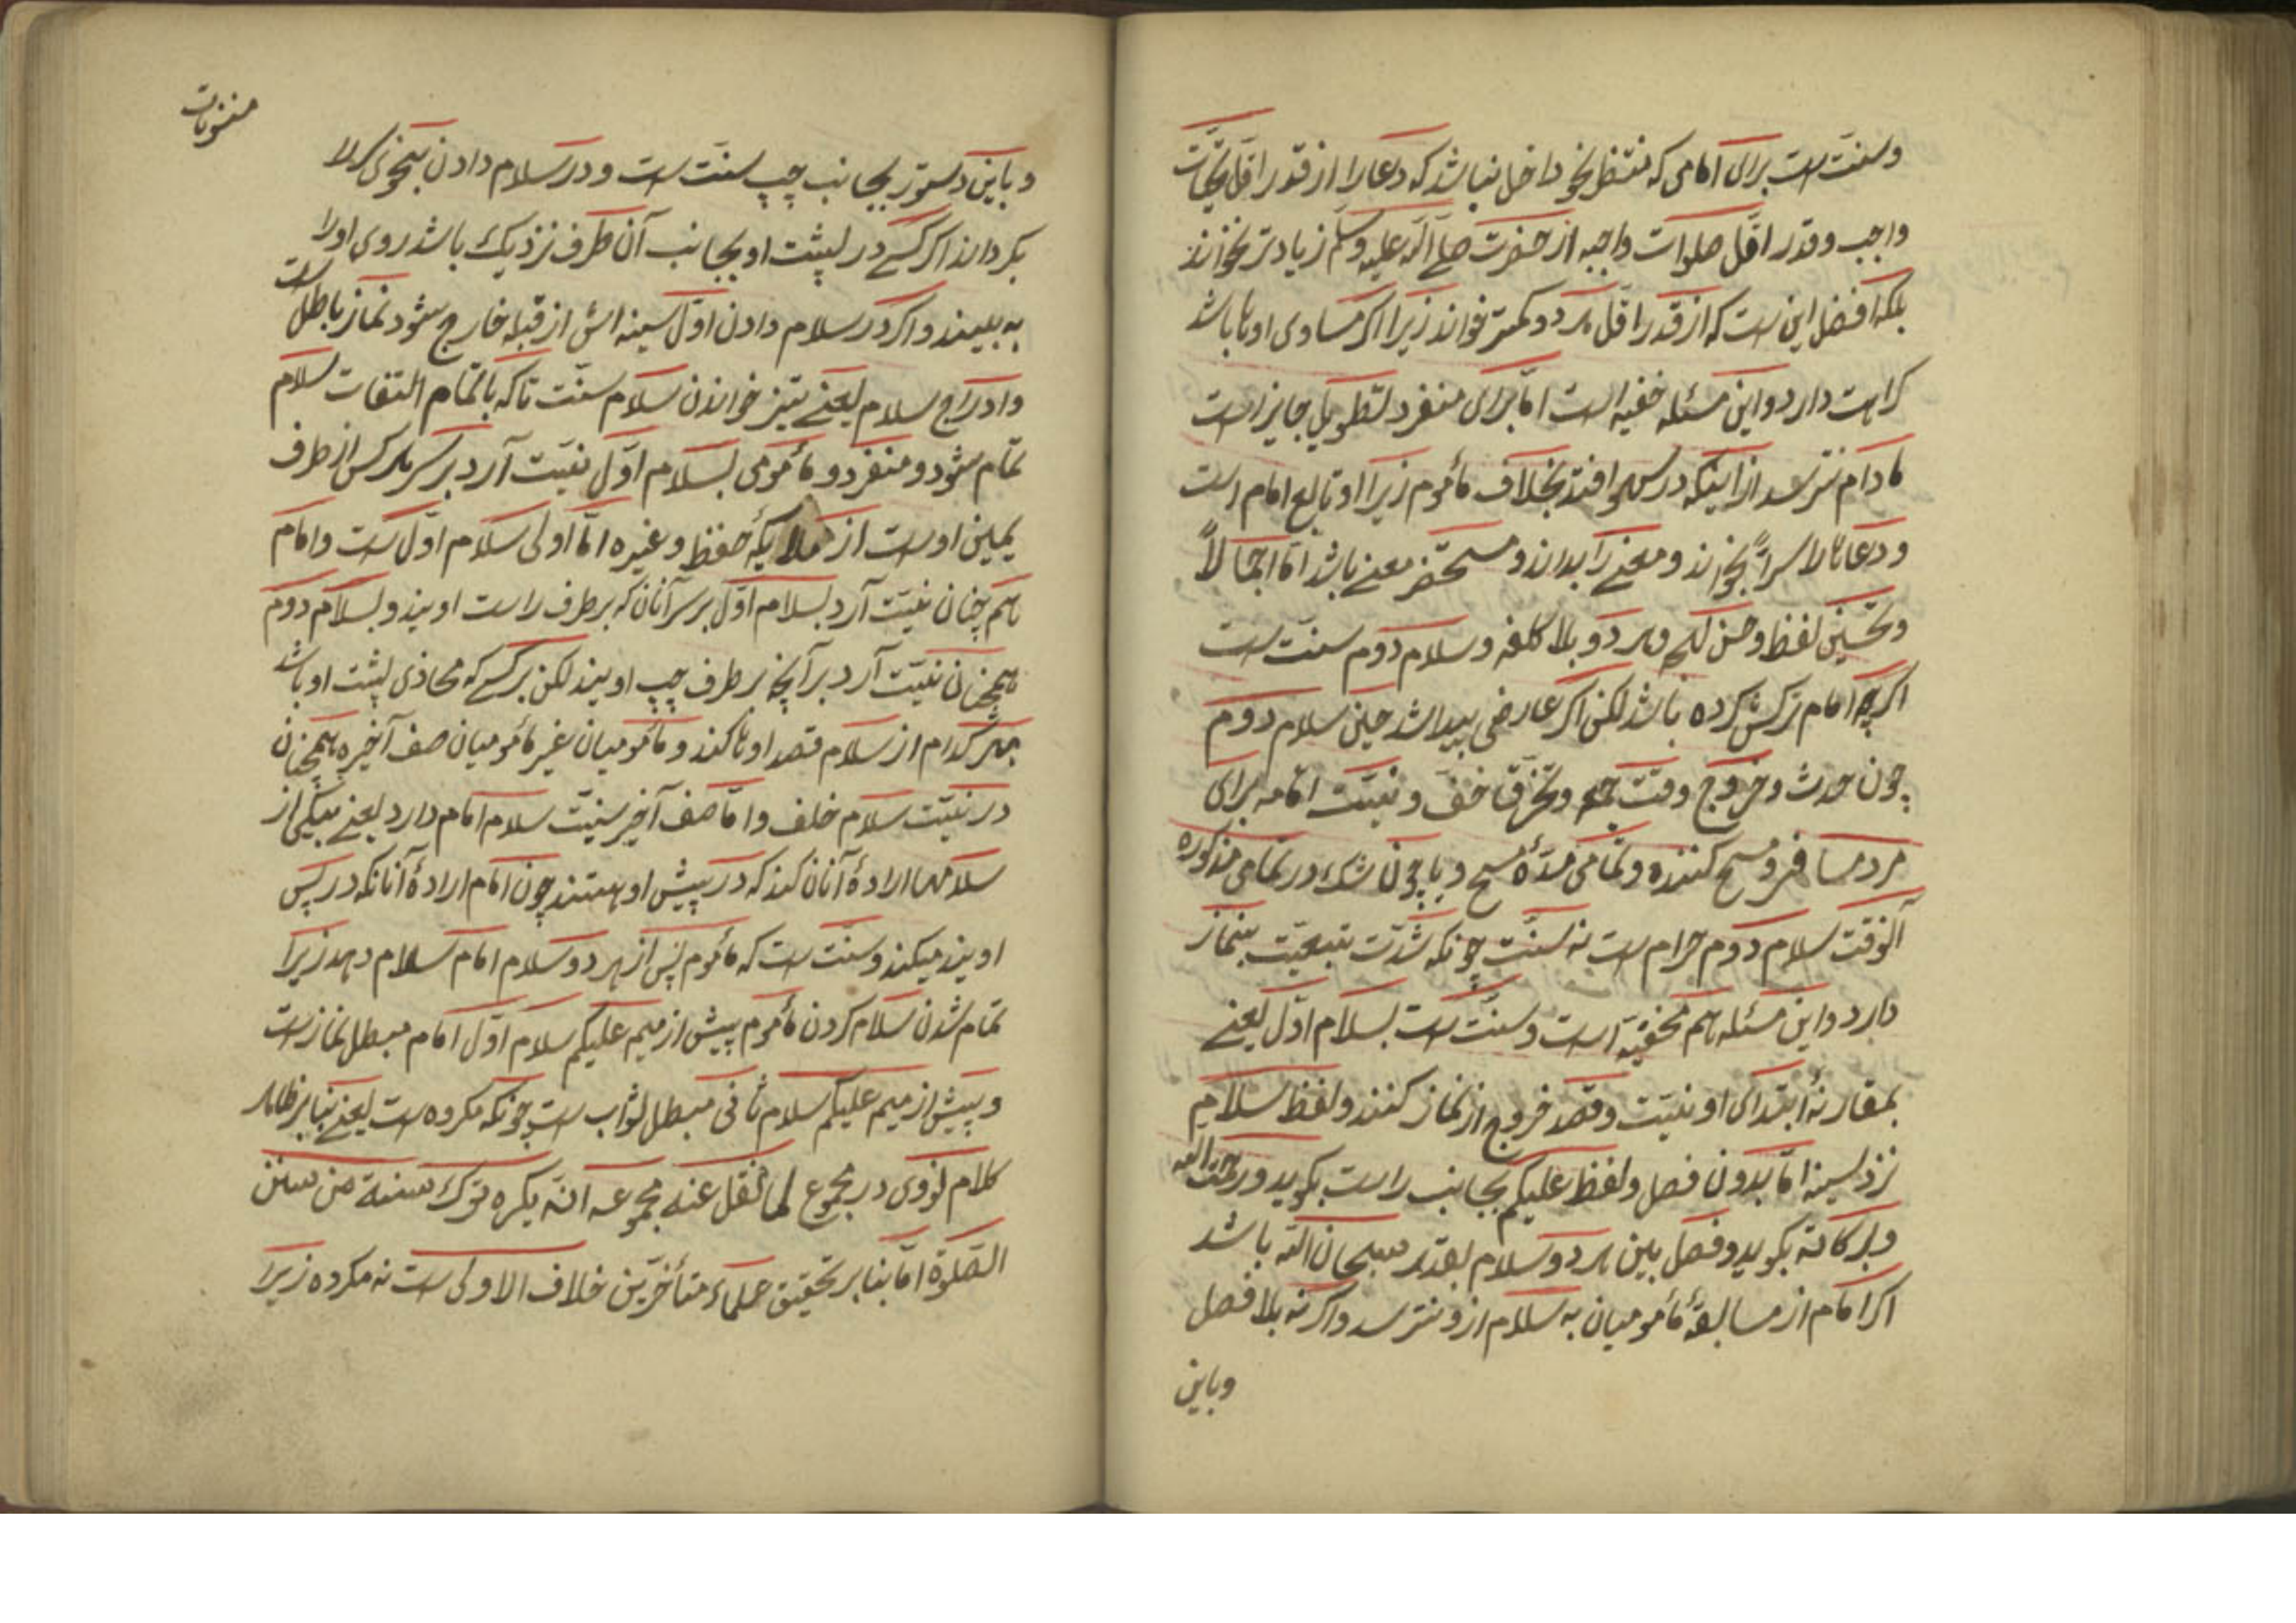 وسنت است برای امامی که منتظر نحو داخل نباشد که دعا را از قدر اقل تحیّات
واجب وقدر اقّل صلوات واجبه از حضرت صلی الله علیه وسلّم زیادتر نخواند
بلکه افضل این ست که از قدر اقل هر دو کمتر خواند زیرا اگر مساوی اوها باشد
کراهت دارد واین مسئله خفیه است امّا برای منفرد تطویل جایز است
مادام نترسد از اینکه در سهو افتد بخلاف مأموم زیرا او تابع امام است
ودعاها لا سراً بخواند ومعنی را بداند ومستحضر معنی باشد امّا اجمالاً
وتحسین لفظ وحسن لهجه وهر دو بلا کلفه وسلام دوم سنت است
اگرچه امام ترکش کرده باشد لکن اگر عارضی پیدا شد حین سلام دوم
چون حدث وخروج وقت جمعه وتخرّق خف ونیّت اقامه برای
مرد مسافر ومسح کننده وتمامی مدّهٔ مسح ویا چون شک در تمامی مذکوره
آنوقت سلام دوم حرام است نه سنّت چونکه شدّت تبعیّت بنماز
دارد واین مسئله هم مخفیّه است وسنّت است بسلام اوّل یعنی
بمقارنهٔ ابتدای او نیّت وقصد خروج از نماز کنند ولفظ سلام
نزد سینه امّا بدون فصل ولفظ علیکم بجانب راست بگوید ورحمت الله
وبرکاته بگوید وفصل بین هر دو سلام بقدر سبحان الله باشد
اگر امام از مسابقهٔ مأمومیان به سلام ازو نترسد واگر نه بلا فصل
وباین
منشویات
وباین دستور بجانب چپ سنّت است ودر سلام دادن بنحوی کلا
بگرداند اگر کسی در پشت او بجانب آن طرف نزدیک باشد روی اورا
به بیند واگر در سلام دادن اوّل سینه اش از قبله خارج شود نماز باطل است
وادراج سلام یعنی تیز خواندن سلام سنّت تا که با تمام التفات سلام
تمام شود ومنفرد ومأمومی بسلام اوّل نیّت آرد بر سر هر کس از طرف
یمین اوست از ملایکهٔ حفظ وغیره امّا اولی سلام اوّل است وامام
هم چنان نیّت آرد بسلام اوّل بر سر آنان که بر طرف راست اویند وبسلام دوم
همچنان نیّت آرد بر آنچه بر طرف چپ اویند لکن بر کسی که محاذی پشت او باشد
بهر کدام از سلام قصد اوها کند ومأمومیان غیر مأمومیان صف آخیره همچنان
در نیّت سلام خلف وامّا صف آخیر سنیّت سلام امام دارد یعنی بیکی از
سلامها ارادهٔ آنان کند که در پیش او هستند چون امام ارادهٔ آنانکه در پس
اویند میکند وسنّت است که مأموم پس از هر دو سلام امام سلام دهد زیرا
تمام شدن سلام کردن مأموم پیش از میم علیکم سلام اوّل امام مبطل نماز است
وپیش از میم علیکم سلام ثانی مبطل ثواب است چونکه مکروه است یعنی بنا بر ظاهر
کلام نووی در مجموع لما نقل عنه مجموعه انّه یکره ترک سنة من سنن
الصّلوة امّا بنا بر تحقیق علماء متأخّرین خلاف الاولی است نه مکروه زیرا